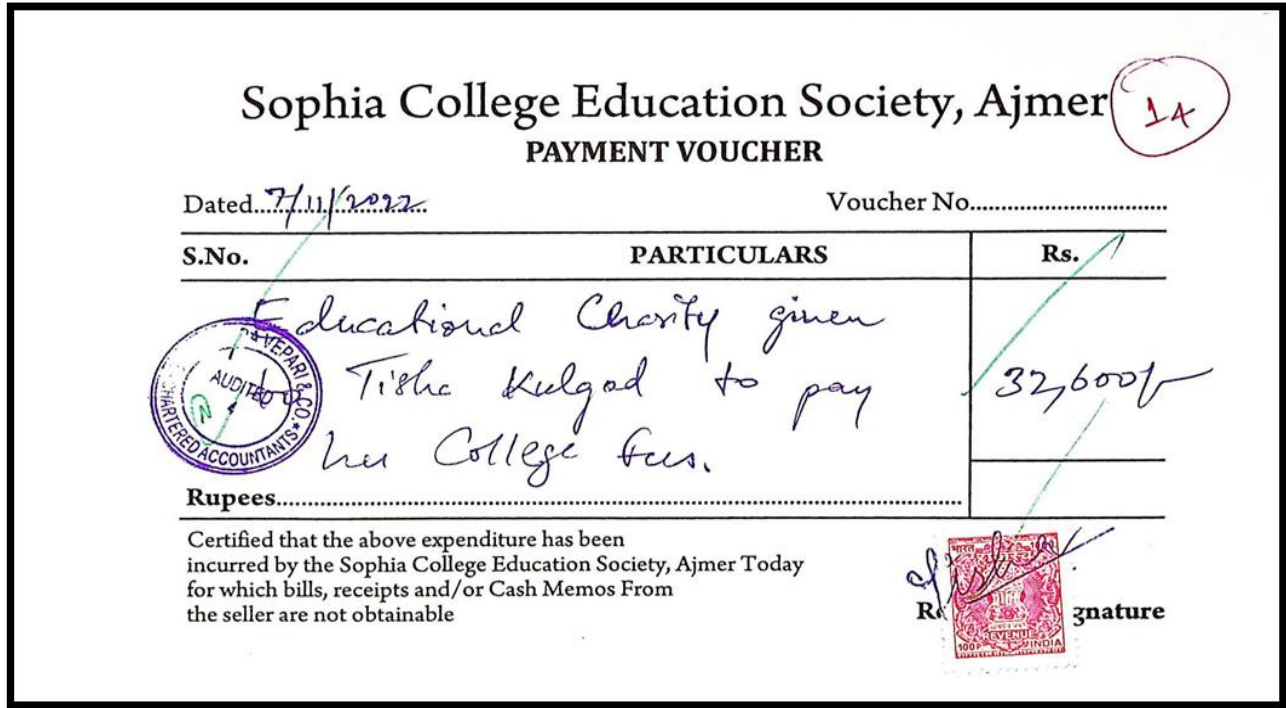 Sophia College Education Society, Ajmer
1A
PAYMENT VOUCHER
Dated 7/11/2022
Voucher No.
S.No. PARTICULARS Rs.
Educational Charity given
to Tisha Kulgad to pay 32,600/-
her College fees.
VEPARI & CO.
AUDITED
CHARTERED ACCOUNTANTS
Rupees
Certified that the above expenditure has been
incurred by the Sophia College Education Society, Ajmer Today
for which bills, receipts and/or Cash Memos From
the seller are not obtainable
भारत
REVENUE
100P INDIA